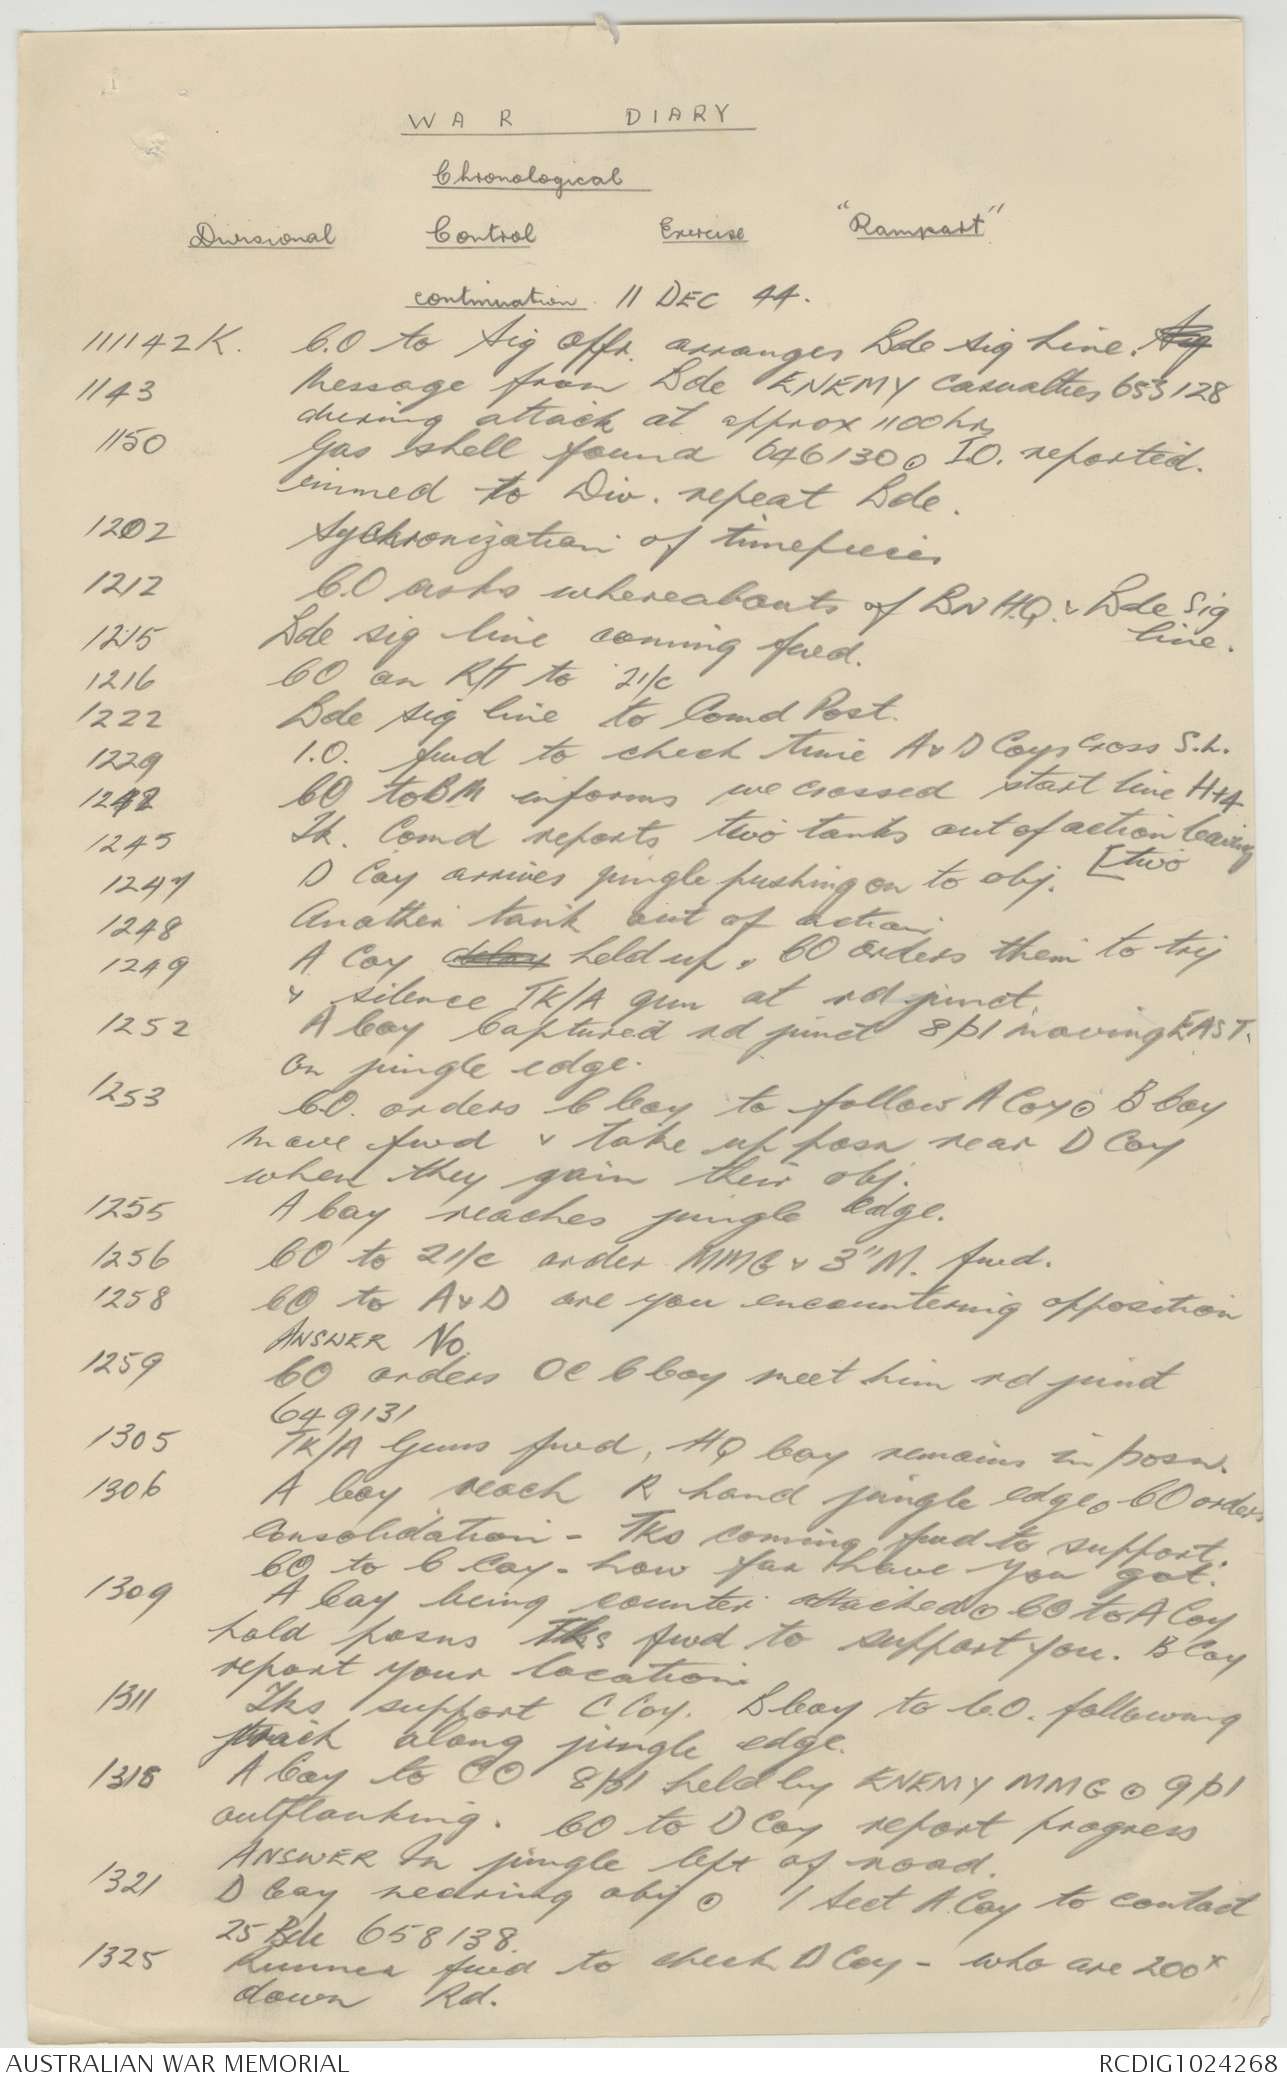 WAR DIARY
Chronological
Divisional Control Exercise "Rampart"
continuation. 11 DEC 44.
111142K. C.O to Sig Offr. arranges Bde sig line. Sig
1143 Message from Bde ENEMY casualties 653128
during attack at approx 1100hrs
1150 Gas shell found 646130. I.O. reported.
immed to Div. repeat Bde.
1202 Sychronization of timepieces
1212 C.O asks whereabouts of BN H.Q. & Bde Sig
line.
1215 Bde sig line coming fwd.
1216 CO on R/T to 2i/c
1222 Bde sig line to Comd Post.
1229 I.O. fwd to check time A & D Coys cross S.L.
1242 CO to BM informs we crossed start line H+4
1245 Tk. Comd reports two tanks out of action leaving
[two
1247 D Coy arrives jungle pushing on to obj.
1248 Another tank out of action
1249 A Coy held up. CO orders them to try
& silence TK/A gun at rd junct.
1252 A Coy Captured rd junct 8 pl moving EAST.
on jungle edge.
1253 CO. orders C Coy to follow A Coy. B Coy
move fwd & take up posn near D Coy
when they gain their obj.
1255 A Coy reaches jungle edge.
1256 CO to 2i/c order MMG & 3"M. fwd.
1258 CO to A & D are you encountering opposition
ANSWER No.
1259 CO orders OC C Coy meet him rd junct
649131
1305 TK/A Guns fwd, HQ Coy remains in posn.
1306 A Coy reach R hand jungle edge. CO orders
consolidation - Tks coming fwd to support.
CO to C Coy - how far have you got.
1309 A Coy being counter attacked. CO to A Coy
hold posns Tks fwd to support you. B Coy
report your location.
1311 Tks support C Coy. B Coy to C.O. following
track along jungle edge.
1318 A Coy to CO 8 pl held by ENEMY MMG. 9 pl
outflanking. CO to D Coy report progress
ANSWER In jungle left of road.
1321 D Coy nearing obj. 1 Sect A Coy to contact
25 Bde 658138.
1325 Runner fwd to check D Coy - who are 200x
down Rd.
AUSTRALIAN WAR MEMORIAL RCDIG1024268